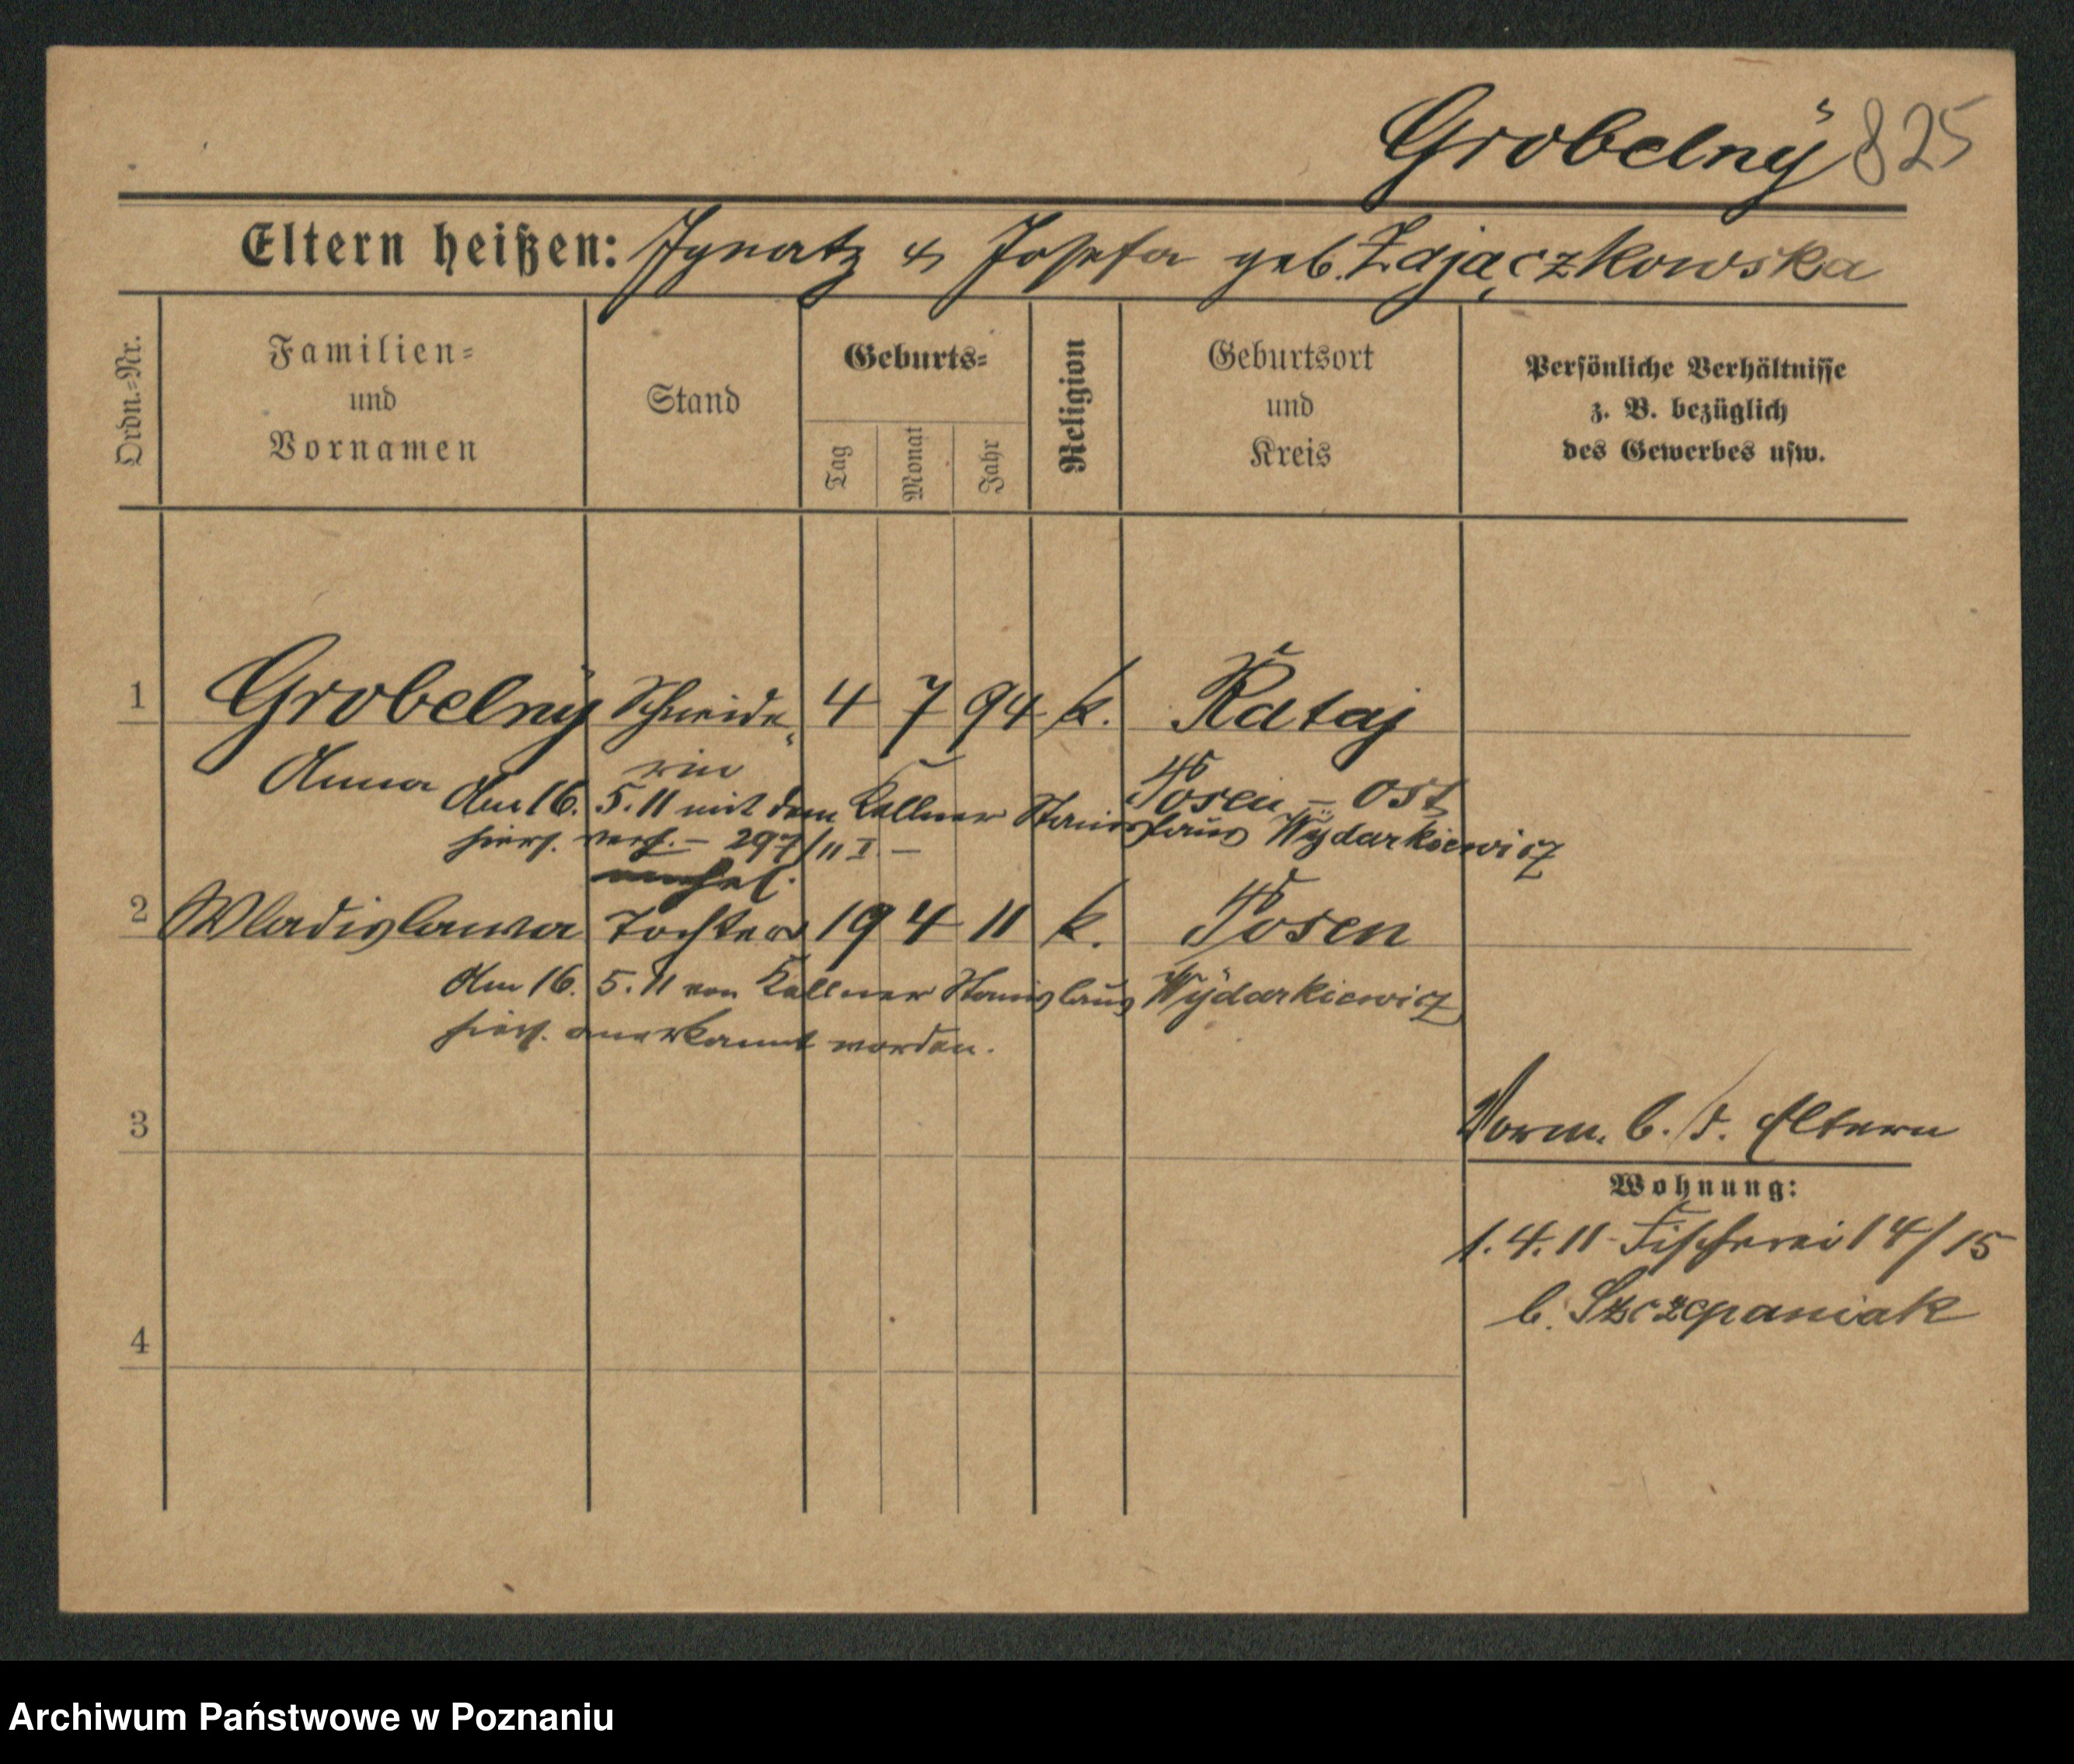 Grobelny 825
Eltern heißen: Ignatz & Josefa geb. Zajączkowska
Ordn.-Nr.
Familien-
und
Vornamen
Stand
Geburts-
Tag
Monat
Jahr
Religion
Geburtsort
und
Kreis
Persönliche Verhältnisse
z. B. bezüglich
des Gewerbes usw.
1 Grobelny Schneide- 4 7 94 k. Rataj
Anna rin Posen - Ost
Am 16. 5. 11 mit dem Kellner Stanislaus Wydarkiewicz
hiers. verh. - 297/11 I. -
unehel.
2 Wladislawa Tochter 19 4 11 k. Posen
Am 16. 5. 11 von Kellner Stanislaus Wydarkiewicz
hiers. anerkannt worden.
3
Vorm. b. d. Eltern
Wohnung:
1. 4. 11 Fischerei 14/15
b. Szczepaniak
4
Archiwum Państwowe w Poznaniu